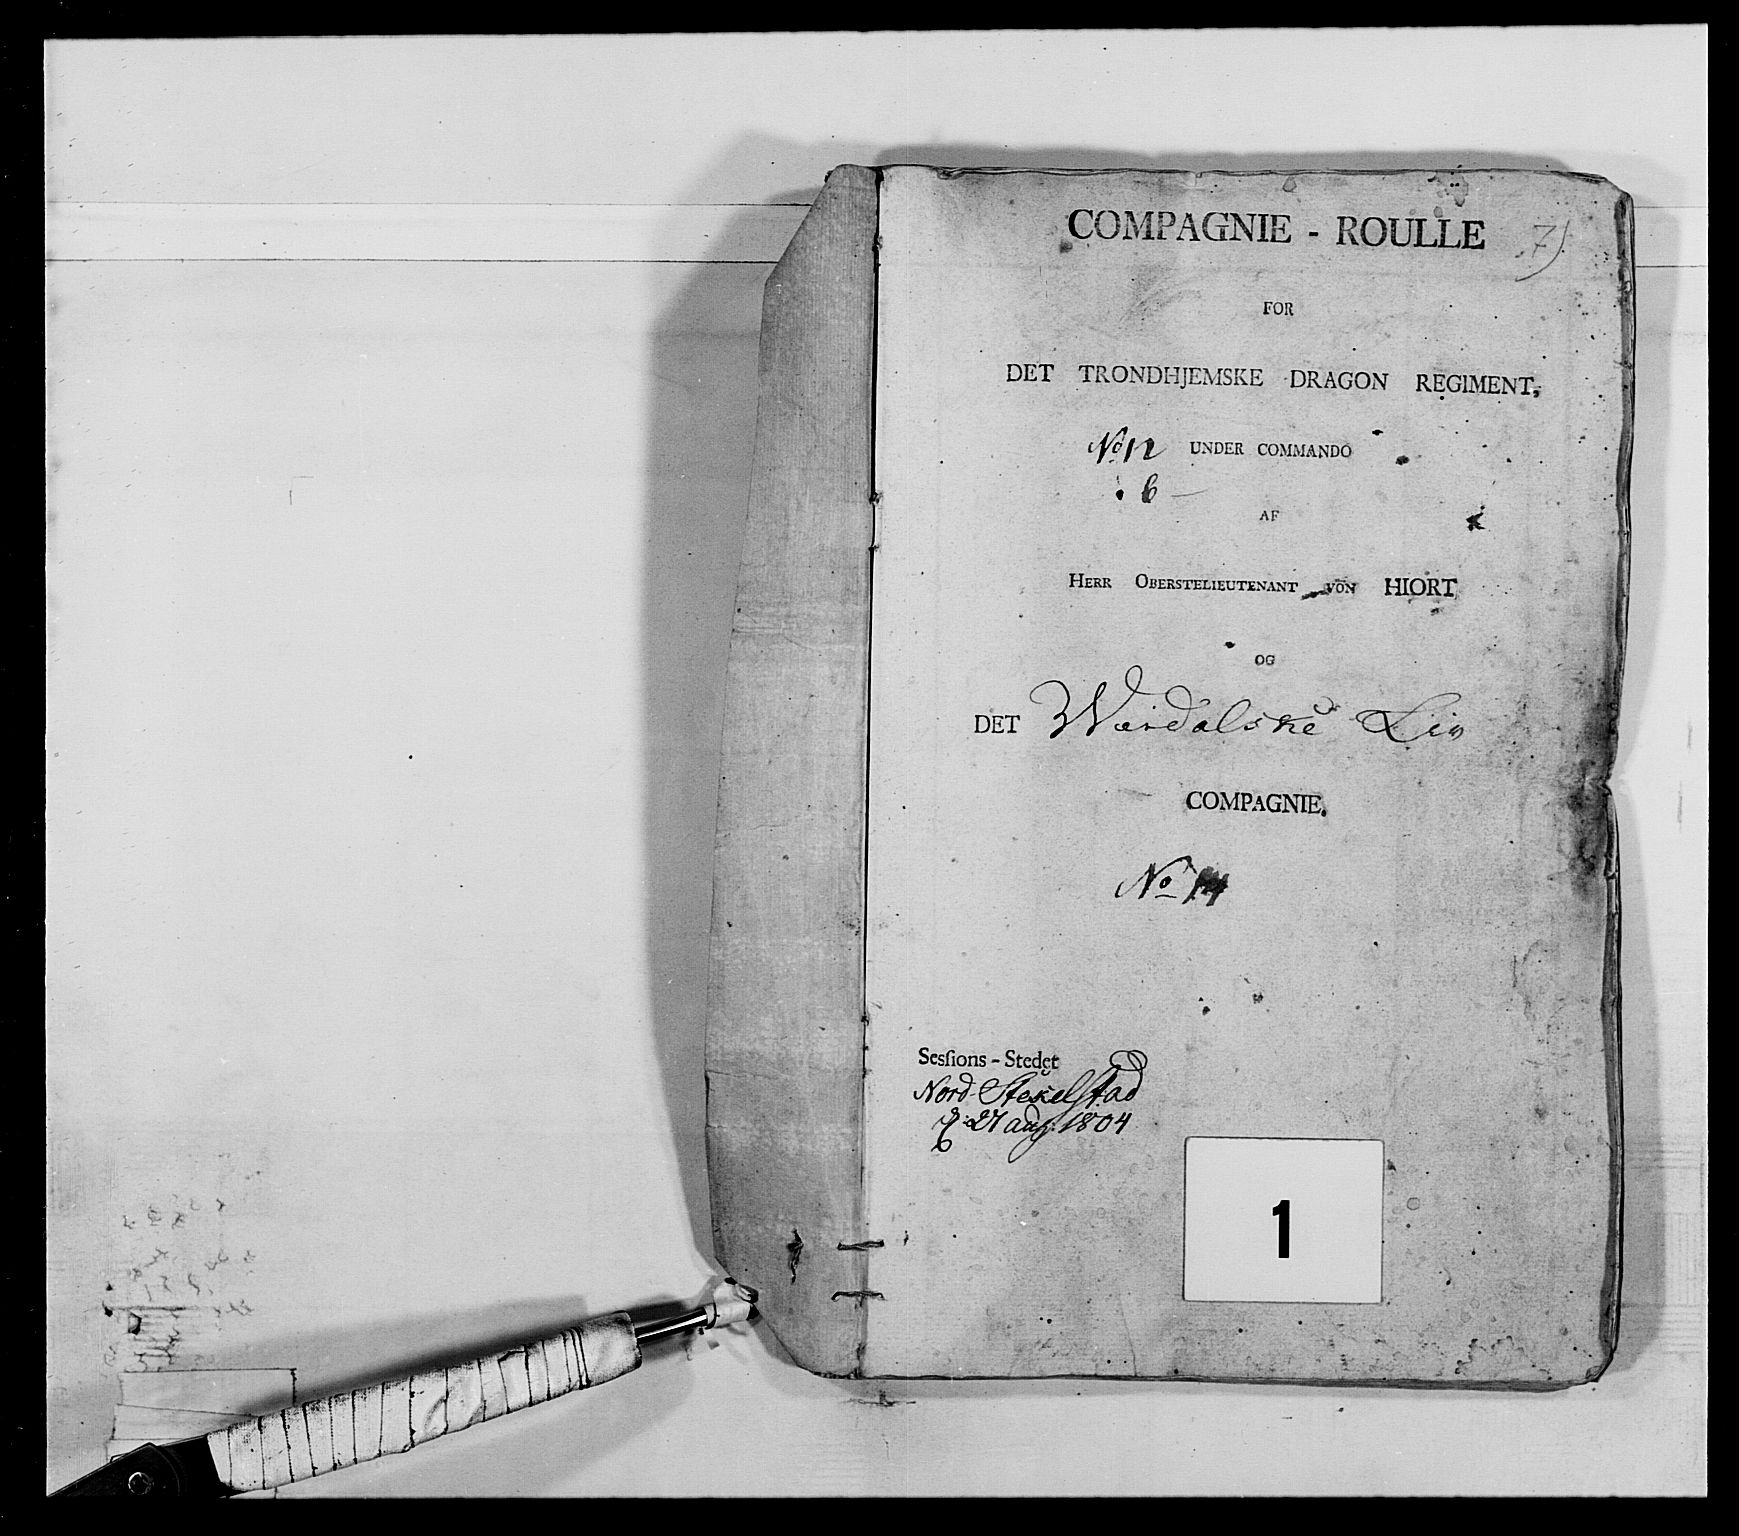 COMPAGNIE - ROULLE 7)
FOR
DET TRONDHJEMSKE DRAGON REGIMENT,
No 12 UNDER COMMANDO
6 -
AF
HERR OBERSTELIEUTENANT VON HIORT
OG
DET Wærdalske Liv
COMPAGNIE.
No
Sesſions - Stedet
Nord Stekelstad
d: 27 aug: 1804
1